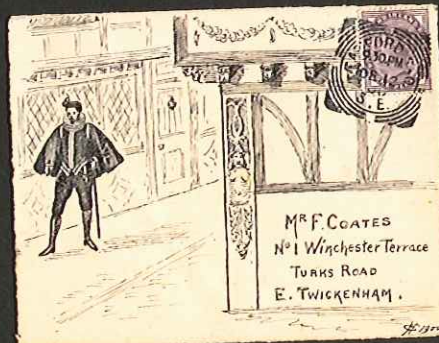 8.30.PM
S.E.
MR F. COATES
No 1 Winchester Terrace
TURKS ROAD
E. TWICKENHAM.